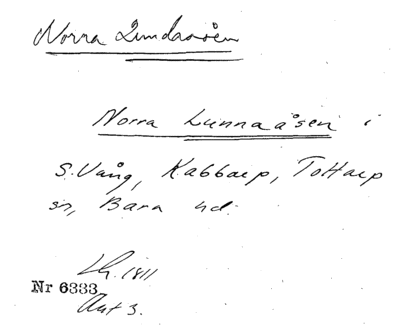 Norra Lundaåsen
Norra Lunnaåsen i
S. Vång, Kabbarp, Tottarp
sn, Bara hd.
Lh. 1811
Nr 6333
Akt 3.